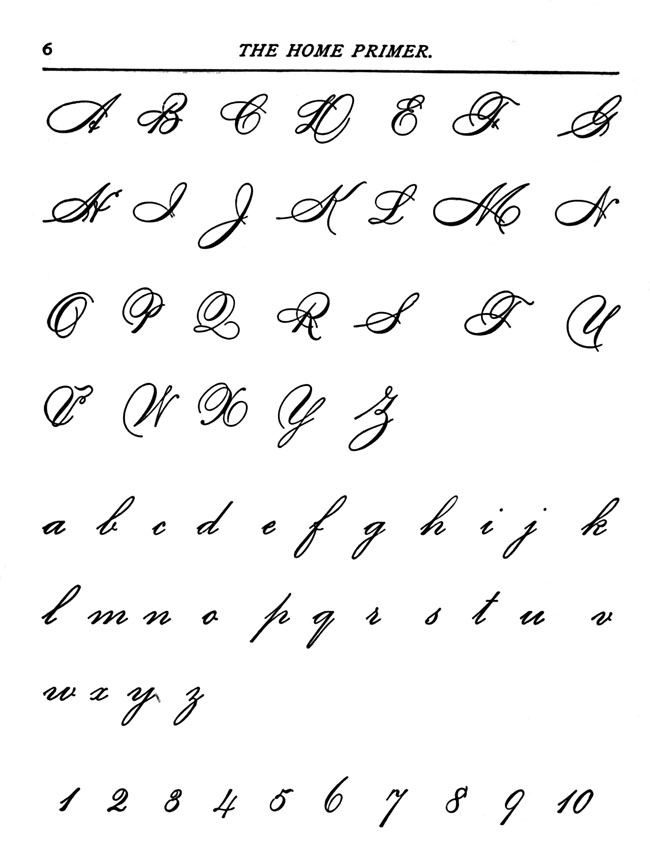 6 THE HOME PRIMER.
A B C D E F G
H I J K L M N
O P Q R S T U
V W X Y Z
a b c d e f g h i j k
l m n o p q r s t u v
w x y z
1 2 3 4 5 6 7 8 9 10